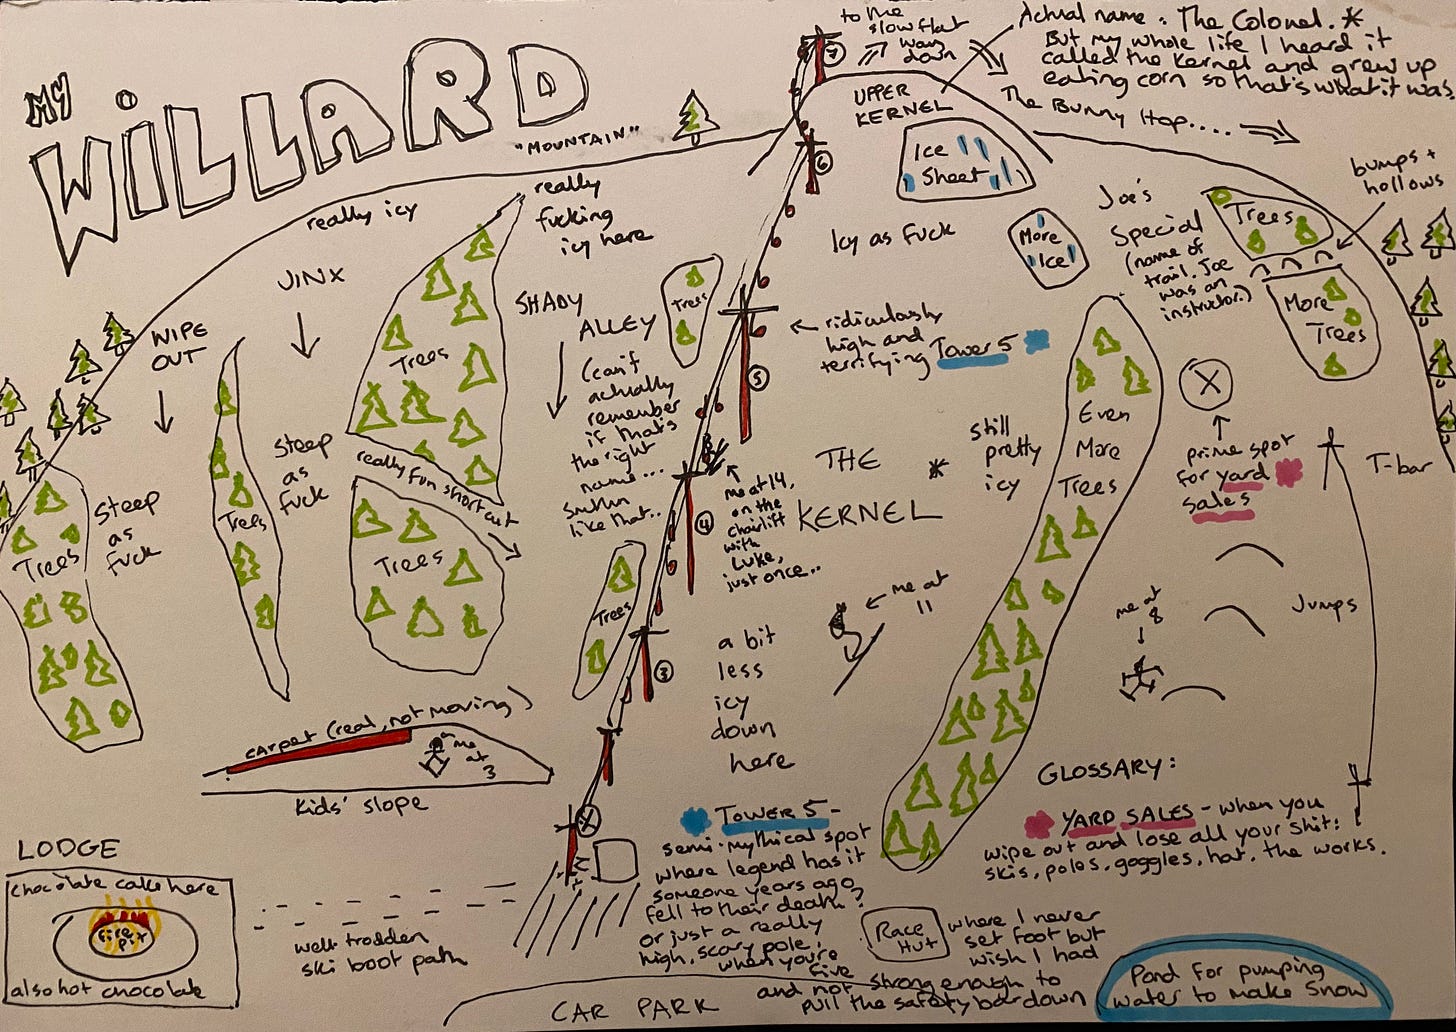 MY
WILLARD
"MOUNTAIN"
to the
slow flat
way
down
Actual name: The Colonel. *
But my whole life I heard it
called the Kernel and grew up
eating corn so that's what it was.
The Bunny Hop....
UPPER
KERNEL
7
6
Ice
Sheet
bumps +
hollows
really icy
really
fucking
icy here
Icy as fuck
More
Ice
Joe's
Special
(name of
trail. Joe
was an
instructor.)
Trees
More
Trees
JINX
WIPE
OUT
SHADY
ALLEY
(can't
actually
remember
if that's
the right
name....
Suthin
like that..
Trees
Trees
5
ridiculously
high and
terrifying Tower 5
X
prime spot
for yard
sales
T-bar
Even
More
Trees
still
pretty
icy
THE *
KERNEL
me at 14,
on the
chairlift
with
Luke,
just once..
4
Steep
as
fuck
Steep
as
fuck
really fun short cut
Trees
Trees
Trees
Trees
3
me at
11
a bit
less
icy
down
here
me at
8
Jumps
carpet (real, not moving)
me
at
3
Kids' slope
GLOSSARY:
YARD SALES - when you
wipe out and lose all your shit:
skis, poles, goggles, hat, the works.
TOWER 5 -
semi-mythical spot
where legend has it
someone years ago
fell to their death?
or just a really
high, scary pole,
when you're
five
and not strong enough to
pull the safety bar down
LODGE
chocolate cake here
fire
pit
also hot chocolate
well trodden
ski boot path
Race
Hut
where I never
set foot but
wish I had
CAR PARK
Pond for pumping
water to make snow